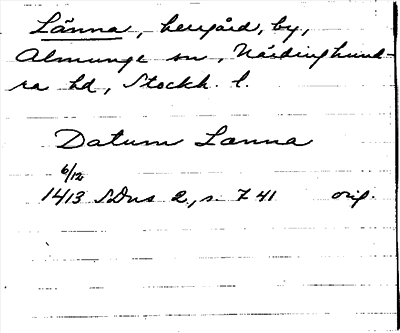 Länna, herrgård, by,
Almunge sn, Närdinghund-
ra hd, Stockh. l.
Datum Lanna
6/12
1413 SDns 2, s. 741 orig.